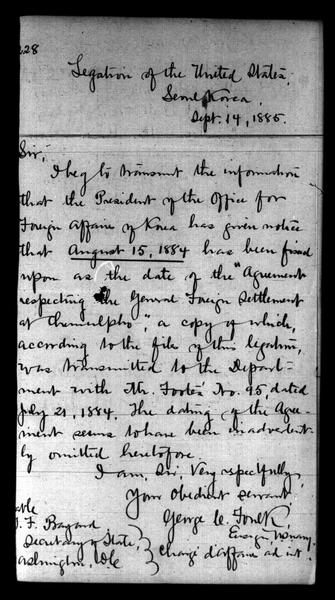 228
Legation of the United States,
Seoul, Korea.
Sept. 14, 1885.
Sir,
I beg to transmit the information
that the President of the Office for
Foreign Affairs of Korea has given notice
that August 15, 1884 has been fixed
upon as the date of the "Agreement
respecting the General Foreign Settlement
at Chemulpho", a copy of which,
according to the files of this legation,
was transmitted to the Depart-
ment with Mr. Foote's No. 95, dated
July 21, 1884. The dating of the Agree-
ment seems to have been inadvertent-
ly omitted heretofore.
I am, Sir, Very respectfully,
Your Obedient servant
George C. Foulk,
Ensign U.S. Navy.
able
T. F. Bayard
Secretary of State,
ashington,
Chargé d'affaires ad int